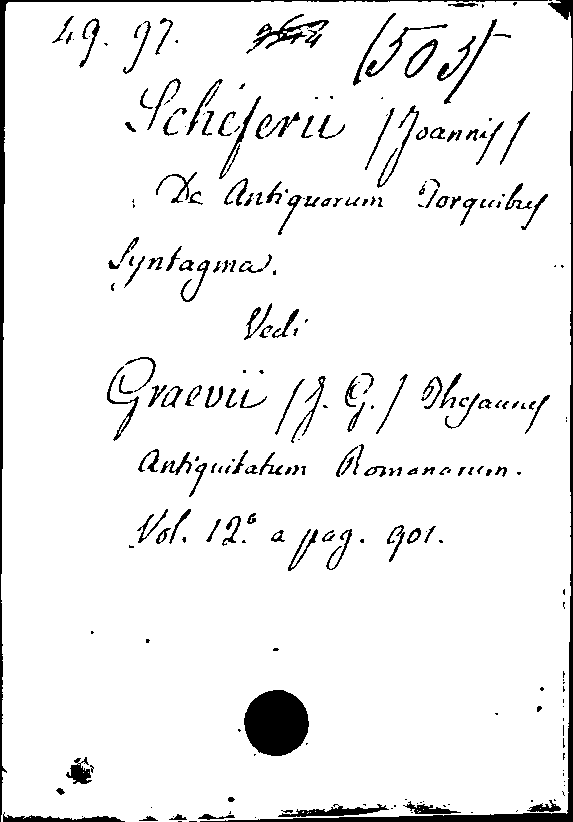 49. 97. (503)
Scheferii (Joannis)
De Antiquorum Torquibus
Syntagma.
Vedi
Graevii (J. G.) Thesaurus
Antiquitatum Romanarum.
Vol. 12.° a pag. 901.